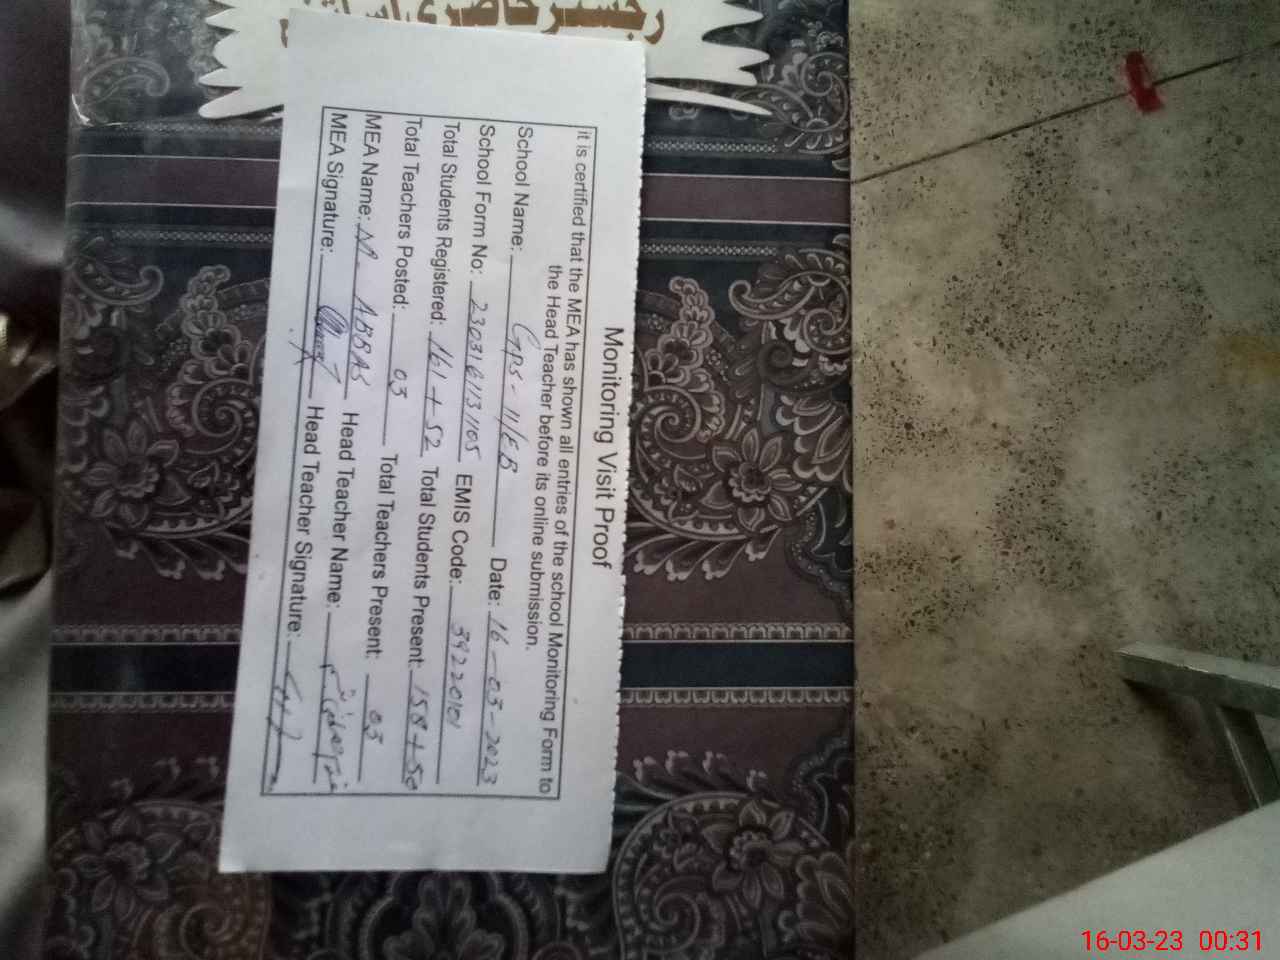 رجسٹر حاضری اساتذہ
Monitoring Visit Proof
it is certified that the MEA has shown all entries of the school Monitoring Form to
the Head Teacher before its online submission.
School Name: GPS - 11/EB Date: 16-03-2023
School Form No: 2303161131105 EMIS Code: 39220101
Total Students Registered: 161 + 52 Total Students Present: 158 + 50
Total Teachers Posted: 03 Total Teachers Present: 03
MEA Name: M. ABBAS Head Teacher Name:
MEA Signature: Head Teacher Signature:
16-03-23 00:31